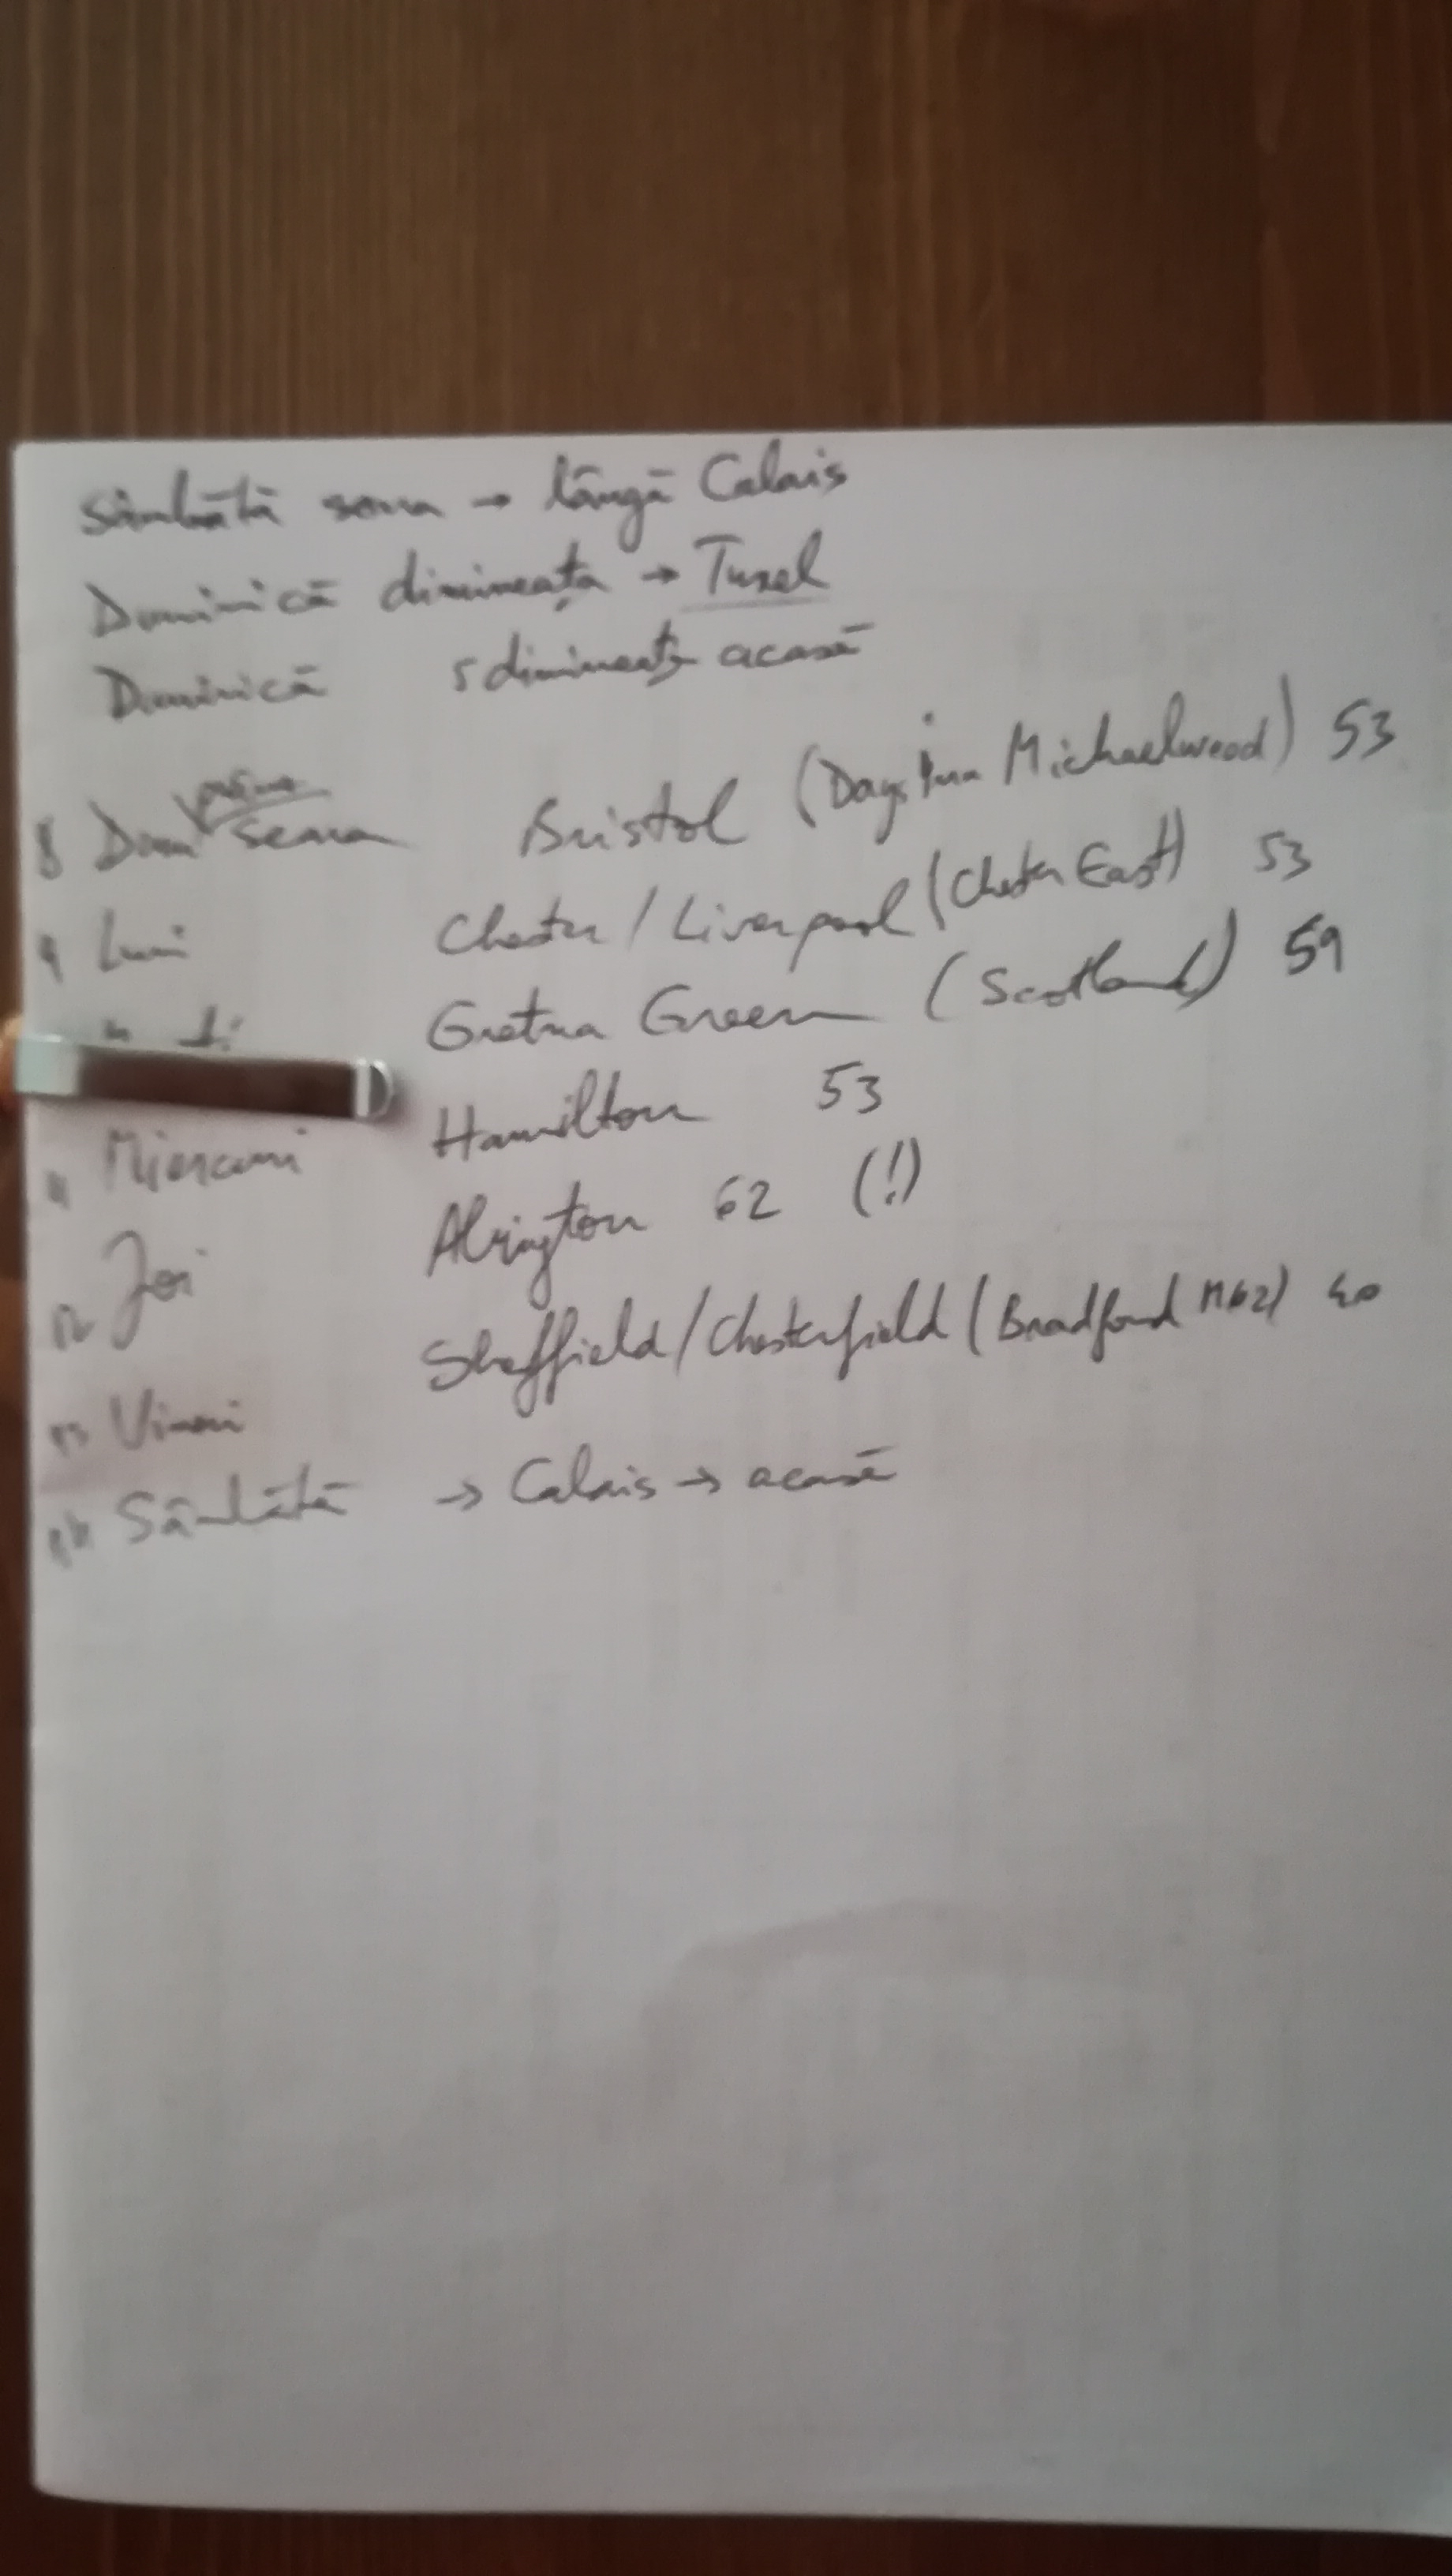 Sâmbătă seara → lângă Calais
Duminică dimineața → Tunel
Duminică dimineață acasă
8 Dum seara Bristol (Days Inn Michaelwood) 53
9 Luni Chester / Liverpool (Chester East) 53
Gretna Green (Scotland) 59
11 Miercuri Hamilton 53
12 Joi Abington 62 (!)
13 Vineri Sheffield / Chesterfield (Bradford M62) 40
14 Sâmbătă → Calais → acasă